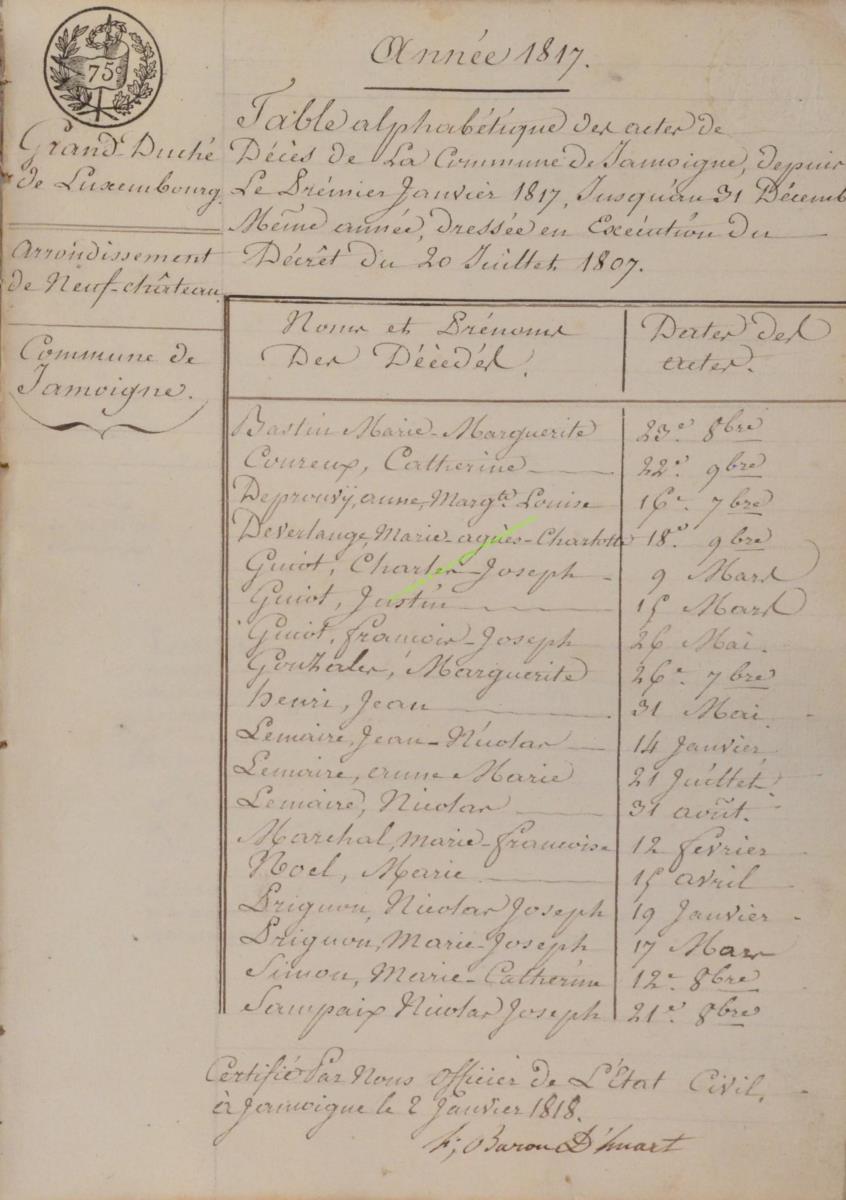 75c
Année 1817.
Grand Duché
de Luxembourg.
Arrondissement
de Neuf-château
Commune de
Jamoigne.
Table alphabétique des actes de
Décès de La Commune de Jamoigne, depuis
Le Prémier Janvier 1817, Jusqu'au 31 Décemb
Même année, dressée en Exécution du
Décrêt du 20 Juillet 1807.
Noms et Prénoms
Des Décédés.
Dates des
actes.
Bastin Marie-Marguerite 23e 8bre
Coureux, Catherine 22e 9bre
Deprouvÿ, anne, Margte Louise 16e 7bre
Deverlange, Marie-agnès-Charlotte 18e 9bre
Guiot, Charles-Joseph 9 Mars
Guiot, Justin 15 Mars
Guiot, françois-Joseph 26 Mai.
Gonzales, Marguerite 26e 7bre
henri, Jean 31 Mai
Lemaire, Jean-Nicolas 14 Janvier
Lemaire, anne Marie 21 Juillet.
Lemaire, Nicolas 31 août.
Marchal, marie-françoise 12 fevrier
Noel, Marie 15 avril
Prignon, Nicolas Joseph 19 Janvier
Prignon, Marie-Joseph 17 Mars
Simon, Marie-Catherine 12e 8bre
Sampaix Nicolas Joseph 21e 8bre
Certifié Par Nous Officier de L'État Civil,
à Jamoigne le 2 Janvier 1818.
Baron D'huart